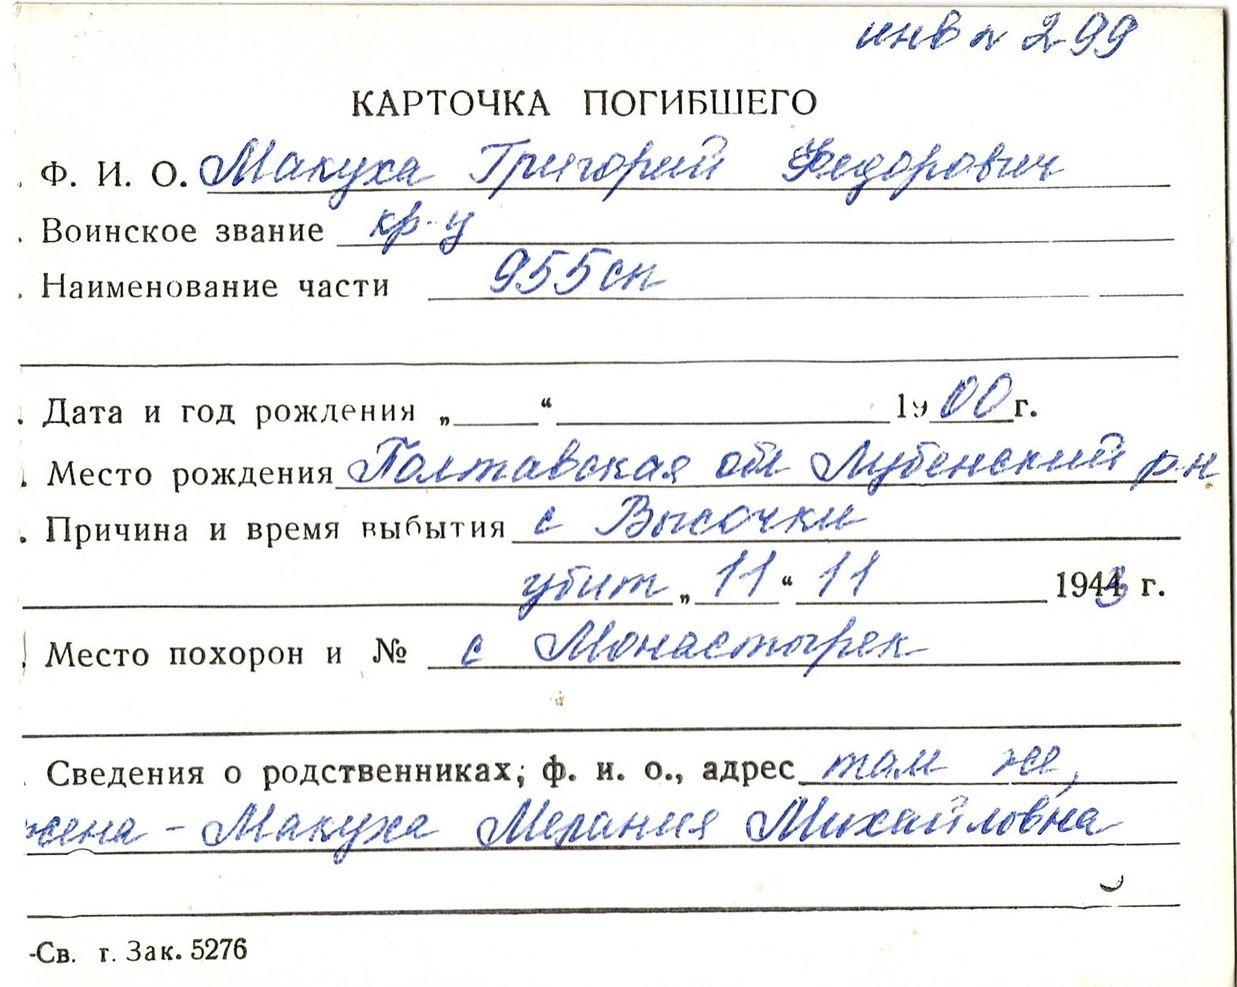 инв № 299
КАРТОЧКА ПОГИБШЕГО
Ф. И. О. Макуха Григорий Федорович
Воинское звание кр-ц
Наименование части 955 сп
Дата и год рождения „ “ 1900 г.
Место рождения Полтавская обл Лубенский р-н
Причина и время выбытия с Высочки
убит „11“ 11 1943 г.
Место похорон и № с Монастырек
Сведения о родственниках; ф. и. о., адрес там же,
жена - Макуха Мелания Михайловна
-Св. г. Зак. 5276